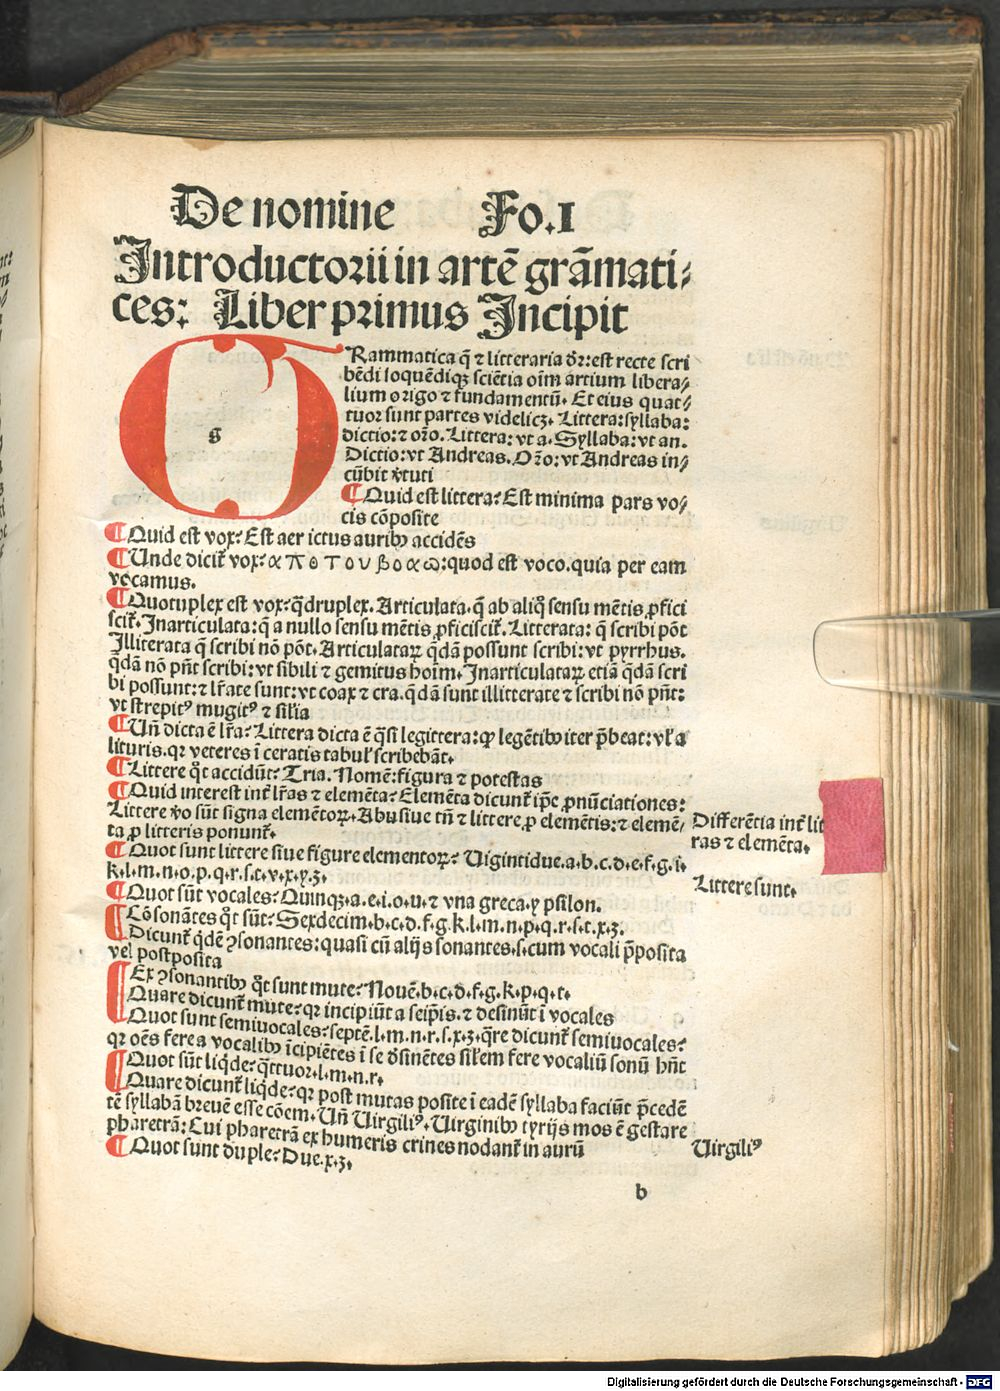 De nomine Fo.I
Introductorii in artē grāmati⸗
ces: Liber primus Incipit
g
Rammatica q̄ ⁊ litteraria dr̄: est recte scri
bēdi loquēdiqȝ sciētia oīm artium libera⸗
lium origo ⁊ fundamentū. Et eius quat⸗
tuor sunt partes videlicȝ. Littera: syllaba:
dictio: ⁊ or̄o. Littera: vt a. Syllaba: vt an.
Dictio: vt Andreas. Or̄o: vt Andreas in⸗
cūbit v̄tuti
¶ Quid est littera? Est minima pars vo⸗
cis cōposite
¶ Quid est vox? Est aer ictus auribꝰ accidēs
¶ Unde dicit̄ vox? α π ο τ ο υ β ο α ω: quod est voco. quia per eam
vocamus.
¶ Quotuplex est vox? q̄druplex. Articulata. q̄ ab aliq̊ sensu mētis ꝓfici
scit̄. Inarticulata: q̄ a nullo sensu mētis ꝓficiscit̄. Litterata: q̄ scribi pōt
Illiterata q̄ scribi nō pōt. Articulataꝝ q̄dā possunt scribi: vt pyrrhus.
q̄dā nō pn̄t scribi: vt sibili ⁊ gemitus hoīm. Inarticulataꝝ etiā q̄dā scri
bi possunt: ⁊ lr̄ate sunt: vt coax ⁊ cra. q̄dā sunt illitterate ⁊ scribi nō pn̄t:
vt strepitꝰ mugitꝰ ⁊ sīlia
¶ Un̄ dicta ē lr̄a? Littera dicta ē q̄si legittera: ꝙ legētibꝰ iter p̄beat: vl̄ a
lituris. qꝛ veteres ī ceratis tabul̄ scribebāt.
¶ Littere q̄t accidūt? Tria. Nomē: figura ⁊ potestas
¶ Quid interest int̄ lr̄as ⁊ elemēta? Elemēta dicunt̄ ip̄e ꝓnūciationes:
Littere v̊o sūt signa elemētoꝝ. Abusiue tn̄ ⁊ littere ꝓ elemētis: ⁊ elemē⸗
ta ꝓ litteris ponunt̄.
Differētia int̄ lit
ras ⁊ elemēta.
¶ Quot sunt littere siue figure elementoꝝ? Uigintidue. a. b. c. d. e. f. g. i.
k. l. m. n. o. p. q. r. s. t. v. x. y. z.
Littere sunt.
¶ Quot sūt vocales? Quinqȝ. a. e. i. o. u. ⁊ vna greca. y psilon.
¶ Cōsonātes q̄t sūt? Sexdecim. b. c. d. f. g. k. l. m. n. p. q. r. s. t. x. z.
Dicunt̄ q̄dē ꝯsonantes: quasi cū alijs sonantes. s. cum vocali p̄posita
vel postposita
¶ Ex ꝯsonantibꝰ q̄t sunt mute? Nouē. b. c. d. f. g. k. p. q. t.
Quare dicunt̄ mute? qꝛ incipiūt a seip̄is. ⁊ desinūt ī vocales
Quot sunt semiuocales? septē. l. m. n. r. s. x. z. q̄re dicunt̄ semiuocales?
qꝛ oēs fere a vocalibꝰ īcipiētes ī se d̄sinētes sil̄em fere vocaliū sonū hn̄t
¶ Quot sūt liq̄de? q̄ttuor. l. m. n. r.
Quare dicunt̄ liq̄de? qꝛ post mutas posite ī eadē syllaba faciūt p̄cedē
tē syllabā breuē esse cōem. Un̄ Uirgiliꝰ. Uirginibꝰ tyrijs mos ē gestare
pharetrā: Cui pharetrā ex humeris crines nodant̄ in aurū
Uirgiliꝰ
¶ Quot sunt duple? Due. x. z.
b
Digitalisierung gefördert durch die Deutsche Forschungsgemeinschaft - DFG